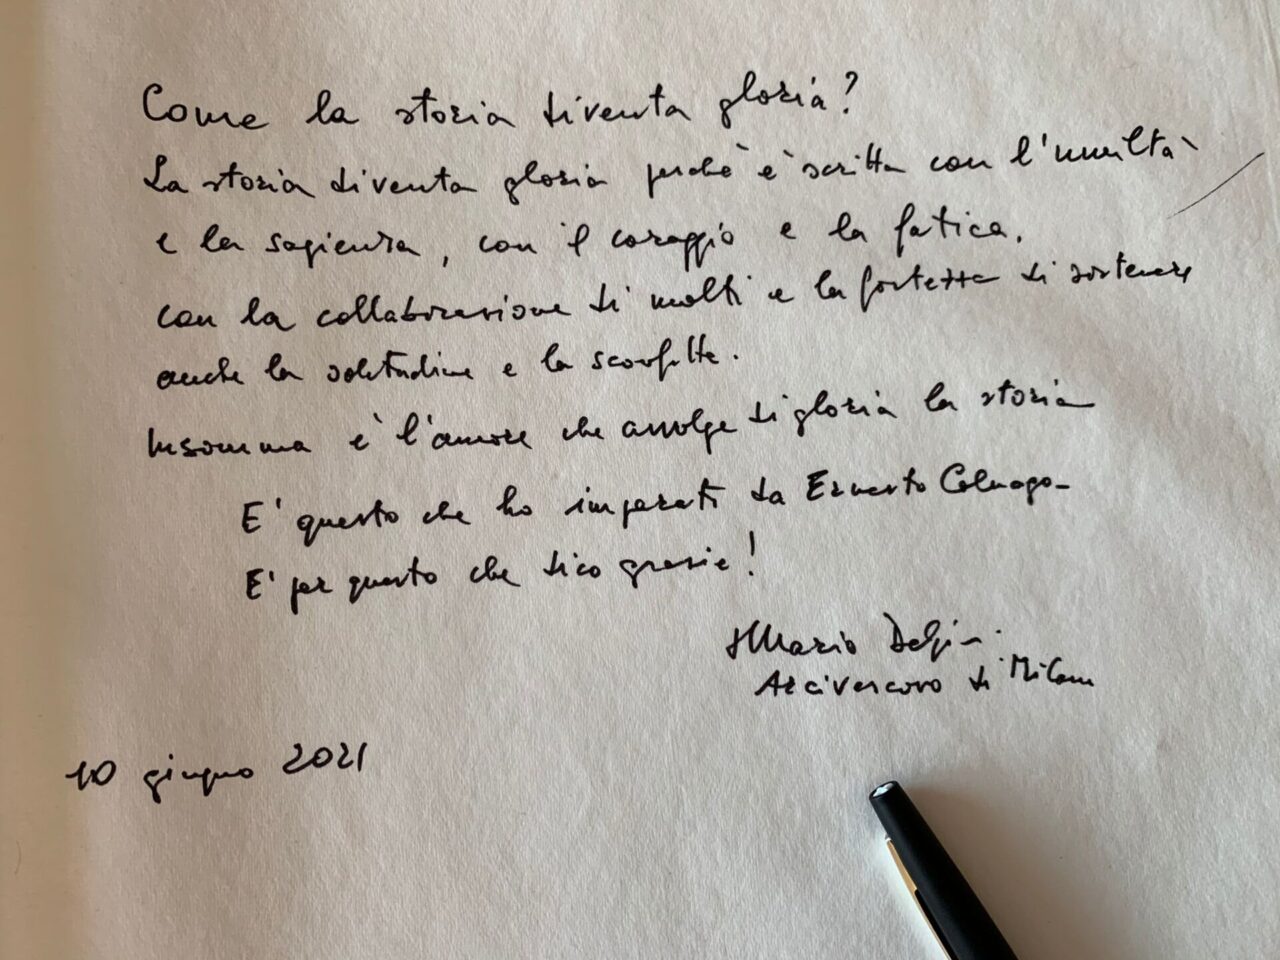 Come la storia diventa gloria?
La storia diventa gloria perchè è scritta con l'umiltà
e la sapienza, con il coraggio e la fatica,
con la collaborazione di molti e la fortezza di sostenere
anche la solitudine e la sconfitta.
Insomma è l'amore che avvolge di gloria la storia
E' questo che ho imparato da Ernesto Colnago-
E' per questo che dico grazie!
+ Mario Delpini
Arcivescovo di Milano
10 giugno 2021